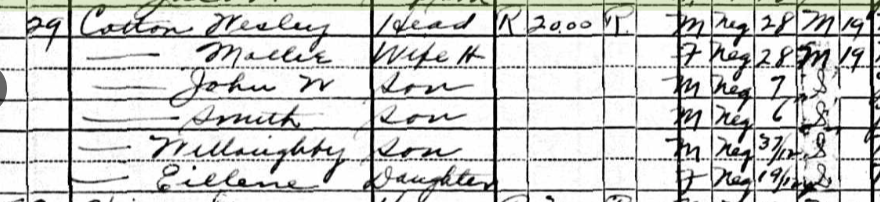 29 Cotton Wesley Head R 20.00 R M Neg 28 M 19
— Mollie Wife H F Neg 28 M 19
— John W Son M Neg 7 S
— Smith Son M Neg 6 S
— Willoughby Son M Neg 3 7/12 S
— Eillene Daughter F Neg 1 9/12 S